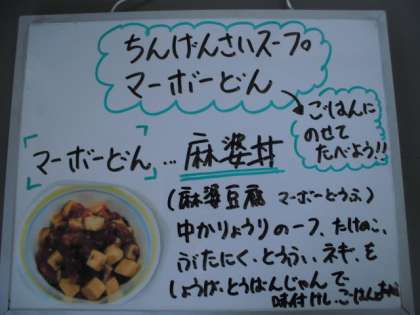 ちんげんさいスープ
マーボーどん
ごはんに
のせて
たべよう!!
マーボーどん … 麻婆丼
(麻婆豆腐 マーボーとうふ)
中かりょうりの一つ、たけのこ、
ぶたにく、とうふ、ネギ、を
しょうが、とうばんじゃんで
味付けし、ごはんに